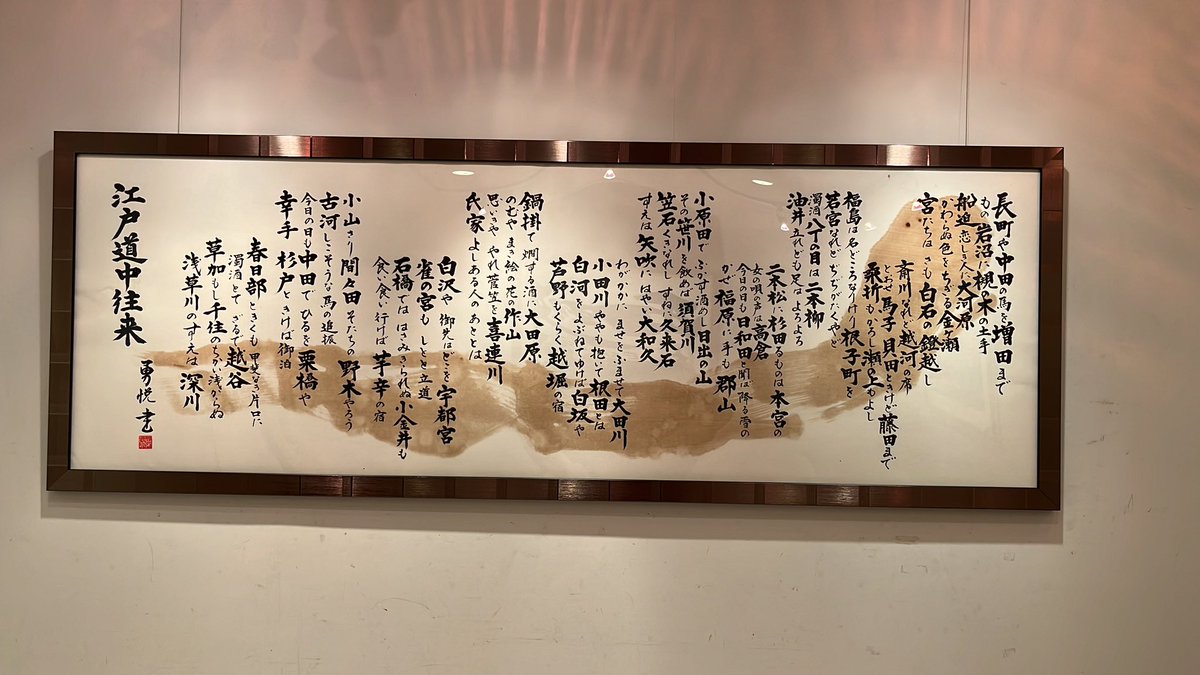 長町や中田の馬を増田まで
もの岩沼に槻ノ木の土手
船迫 恋しき人に大河原
かわらぬ色をちぎる金ヶ瀬
宮たちは さも白石の鐙越し
斎川なれど越河の席
とせぞ馬子貝田ときけど藤田まで
桑折もかろし瀬の上もよし
福島は名どころなりけり根子町を
若宮なれどちぢがたくやと
濁酒八丁の目は二本柳
油井立れども足はよろよろ
二本松に杉田るものは本宮の
女の唄の声は高倉
今日の日も日和田と聞ば降る雪の
かぜ福原に手も郡山
小原田で ぶかす酒めし日出の山
その笹川を飲めば須賀川
笠石くきなれし すねに久来石
すえは矢吹にはやい大和久
わがかかに ませをふませて大田川
小田川やゃも抱いて根田とは
白河をよぶねてゆけば白坂や
芦野もくらく越堀の宿
鍋掛で燗する酒に大田原
のむや まき絵の花の作山
思いきや やれ菅笠を喜連川
氏家 よしある人のあとは
白沢や御先はどこを宇都宮
雀の宮もしとと立道
石橋では はさみきられぬ小金井も
食い食い行けば芋辛の宿
小山さり間々田そだちの野木やろう
古河しこそうな馬の追坂
今日の日も中田でひるを栗橋や
幸手 杉戸ときけば御泊
春日部ときくも 甲斐なき片口に
濁酒とて ざるで越谷
草加もし千住のちかい浅からぬ
浅草川のすえは深川
江戸道中往来
勇悦 書